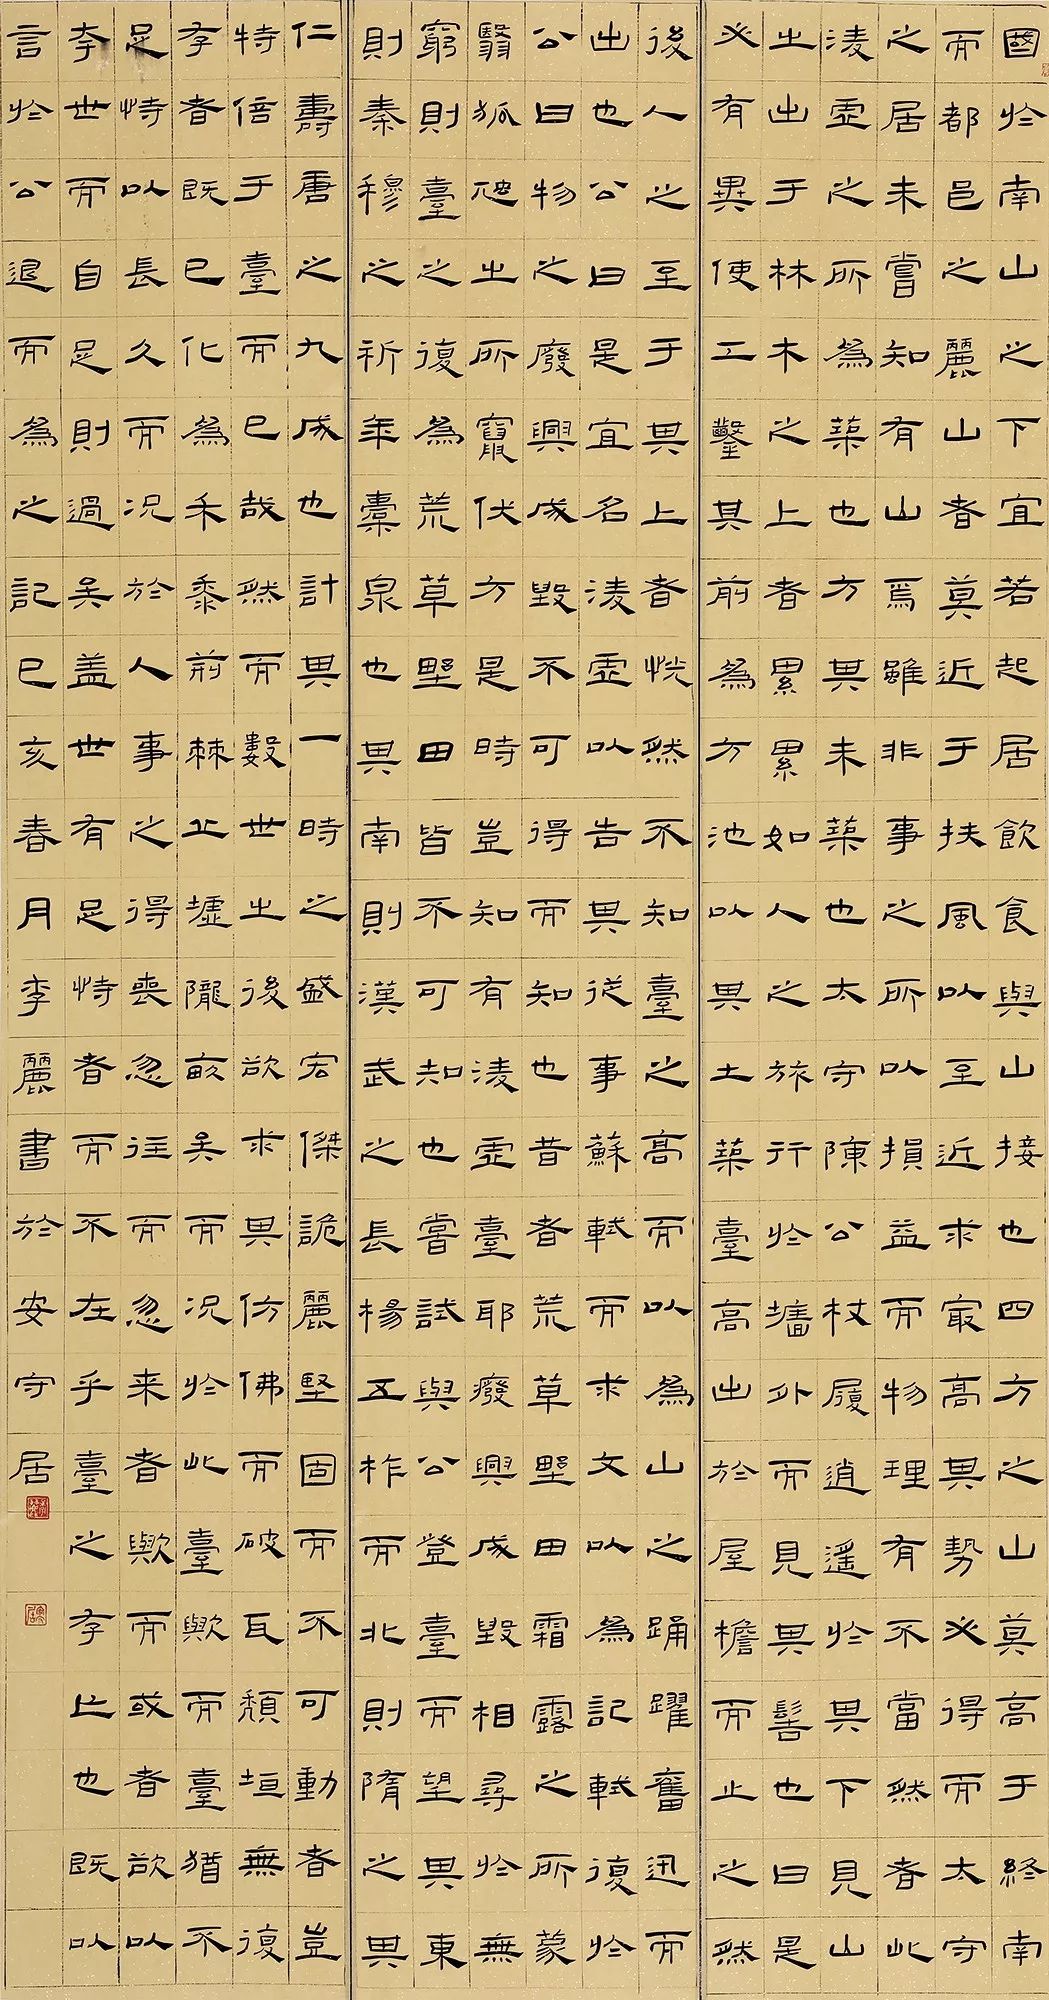 國於南山之下宜若起居飲食與山接也四方之山莫高于終南
而都邑之麗山者莫近于扶風以至近求最高其勢必得而太守
之居未嘗知有山焉雖非事之所以損益而物理有不當然者此
淩虛之所為築也方其未築也太守陳公杖履逍遙於其下見山
之出于林木之上者累累如人之旅行於牆外而見其髻也曰是
必有異使工鑿其前為方池以其土築臺高出於屋檐而止之然
後人之至于其上者恍然不知臺之高而以為山之踊躍奮迅而
出也公曰是宜名淩虛以告其從事蘇軾而求文以為記軾復於
公曰物之廢興成毀不可得而知也昔者荒草野田霜露之所蒙
翳狐虺之所竄伏方是時豈知有淩虛臺耶廢興成毀相尋於無
窮則臺之復為荒草野田皆不可知也嘗試與公登臺而望其東
則秦穆之祈年橐泉也其南則漢武之長楊五柞而北則隋之其
仁壽唐之九成也計其一時之盛宏傑詭麗堅固而不可動者豈
特倍于臺而已哉然而數世之後欲求其仿佛而破瓦頹垣無復
存者既已化為禾黍荊棘丘墟隴畝矣而况於此臺歟而臺猶不
足恃以長久而况於人事之得喪忽往而忽来者歟而或者欲以
夸世而自足則過矣盖世有足恃者而不在乎臺之存亡也既以
言於公退而為之記己亥春月李麗書於安守居